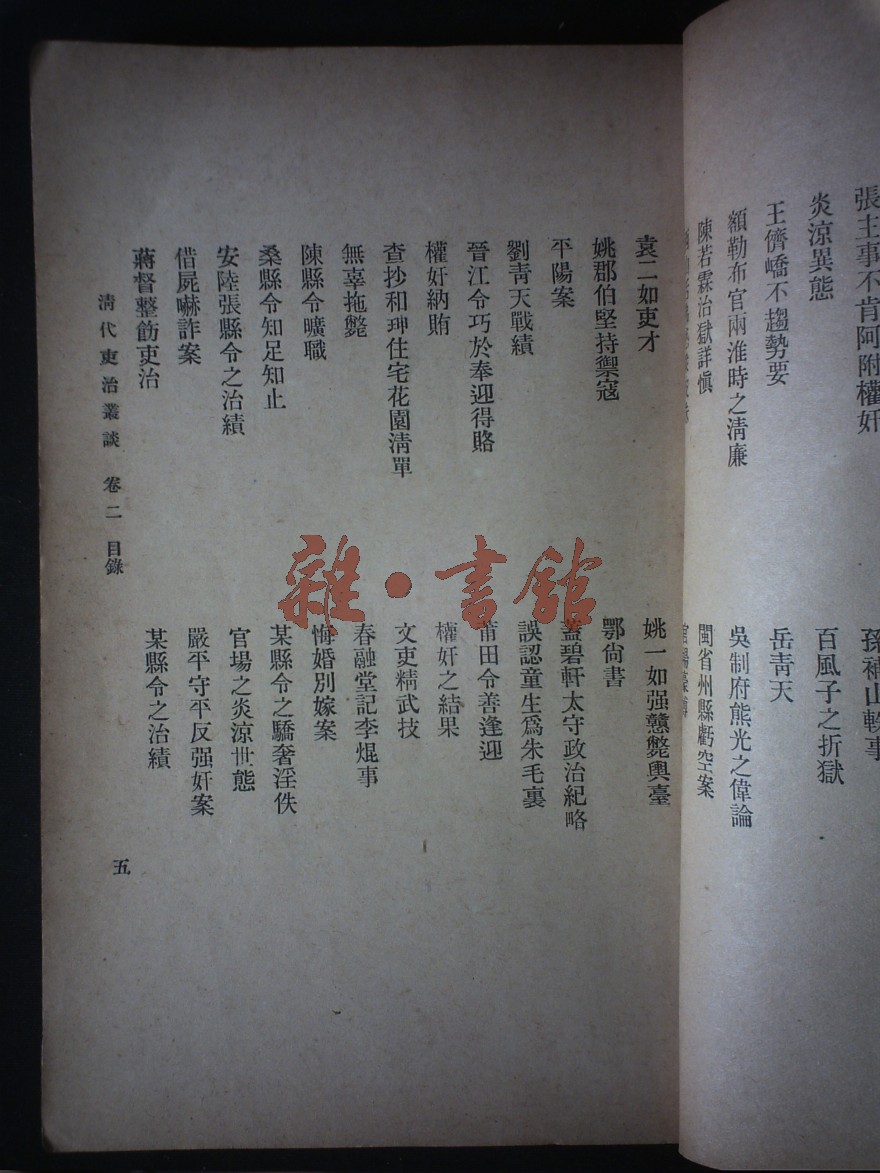 張主事不肯阿附權奸
孫補山軼事
炎涼異態
百風子之折獄
王儕嶠不趨勢要
岳青天
額勒布官兩淮時之清廉
吳制府熊光之偉論
陳若霖治獄詳愼
閩省州縣虧空案
袁二如吏才
姚一如强戇斃輿臺
姚郡伯堅持禦寇
鄂尙書
平陽案
蓋碧軒太守政治紀略
劉青天戰績
誤認童生爲朱毛裏
晉江令巧於奉迎得賂
莆田令善逢迎
權奸納賄
權奸之結果
查抄和珅住宅花園清單
文吏精武技
無辜拖斃
春融堂記李焜事
陳縣令曠職
悔婚別嫁案
桑縣令知足知止
某縣令之驕奢淫佚
安陸張縣令之治績
官場之炎涼世態
借屍嚇詐案
嚴平守平反强奸案
蔣督整飭吏治
某縣令之治績
清代吏治叢談 卷二 目錄
五
雜·書館